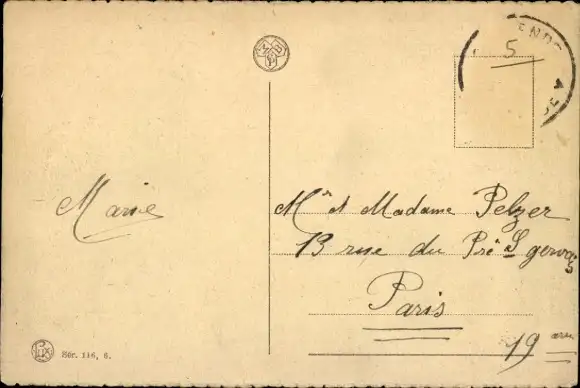 5
Marie
Mr et Madame Pelzer
13 rue du Pré St gervais
Paris
19 arr
Sér. 116, 6.